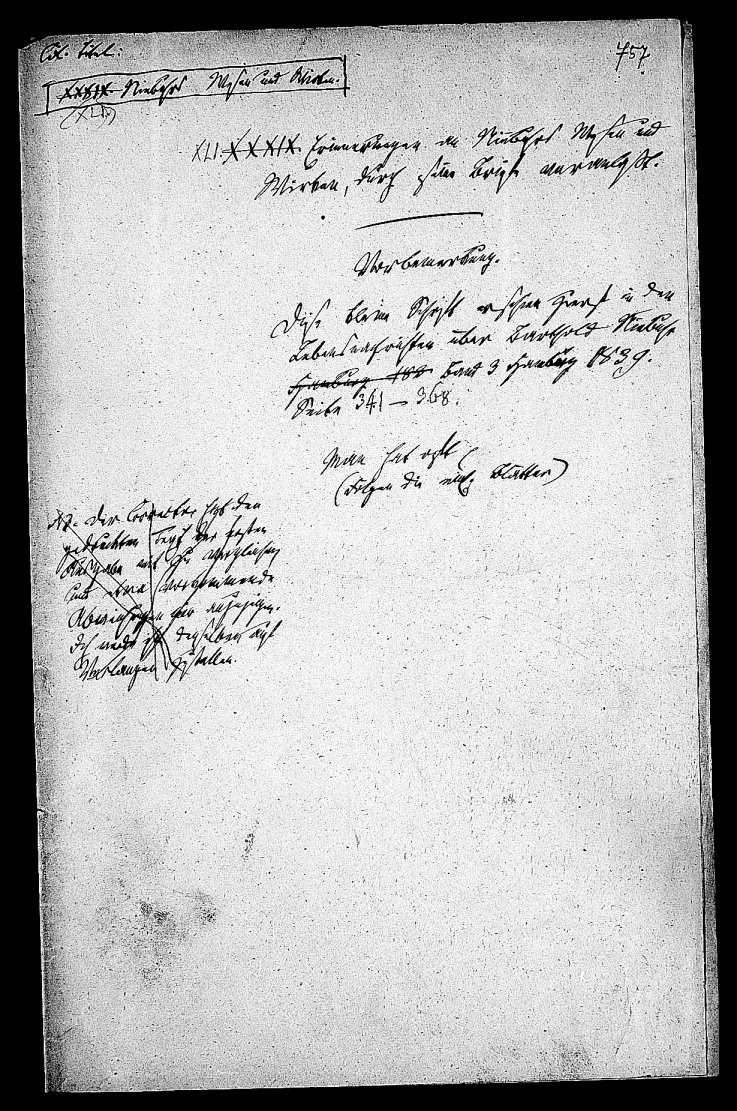 Col. Titel:
757
XXXIX. Niebuhrs Wesen und Wirken.
(XLI.)
XLI. XXXIX. Erinnerungen an Niebuhrs Wesen und
Wirken, durch seine Briefe veranlaßt.
Vorbemerkung.
Diese kleine Schrift erschien zuerst in den
Lebensnachrichten über Barthold Niebuhr
Hamburg 183 Band 3 Hamburg 1839.
Seite 341-368.
Man hat oft
(Folgen die Blätter)
NB. Der Corrector hat den
gedruckten Text der ersten
Ausgabe mit zu vergleichen
und etwa vorkommende
Abweichungen mir anzuzeigen.
Ich werde ihm denselben auf
Verlangen zustellen.